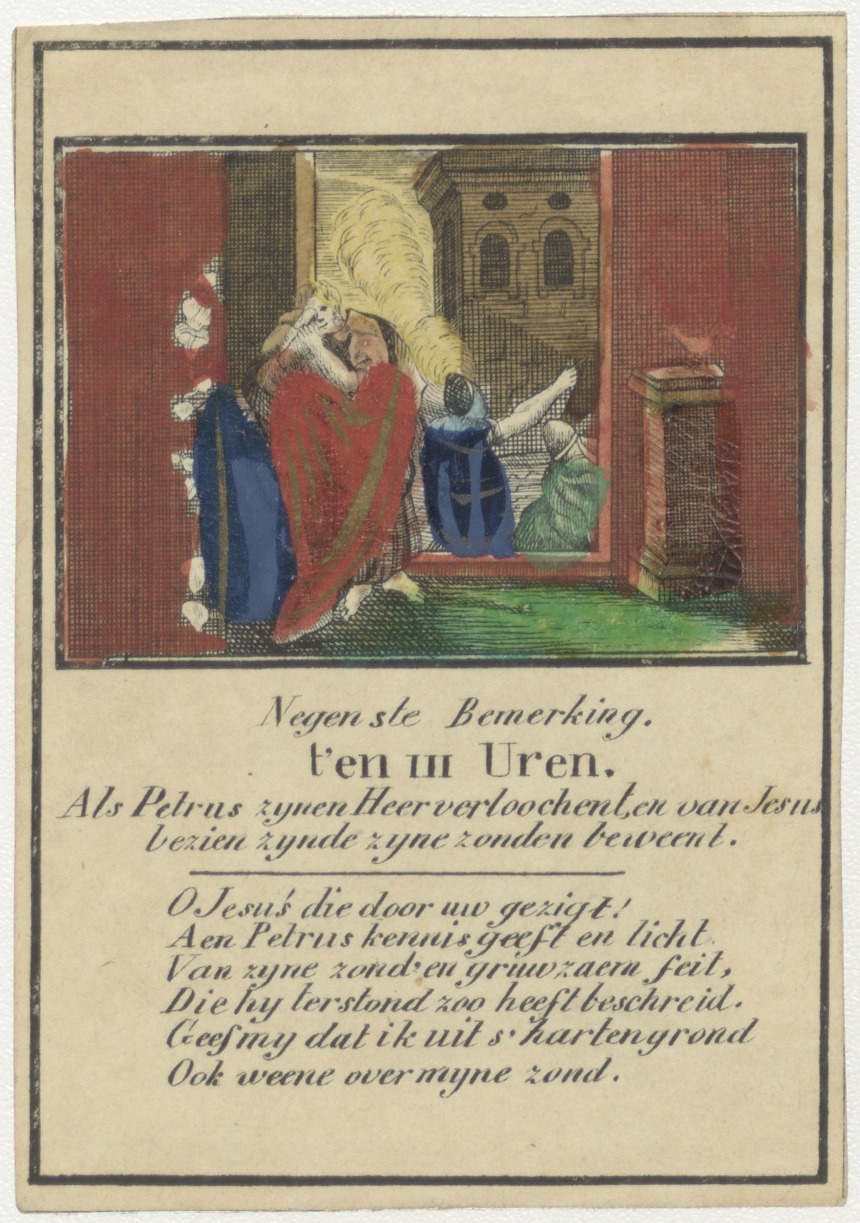 Negenste Bemerking.
t'en III Uren.
Als Petrus zynen Heer verloochent, en van Jesus
bezien zynde zyne zonden beweent.
O Jesu's die door uw gezigt!
Aen Petrus kennis geeft en licht.
Van zyne zond' en gruwzaem feit,
Die hy terstond zoo heeft beschreid.
Geef my dat ik uit s' hartengrond
Ook weene over myne zond.